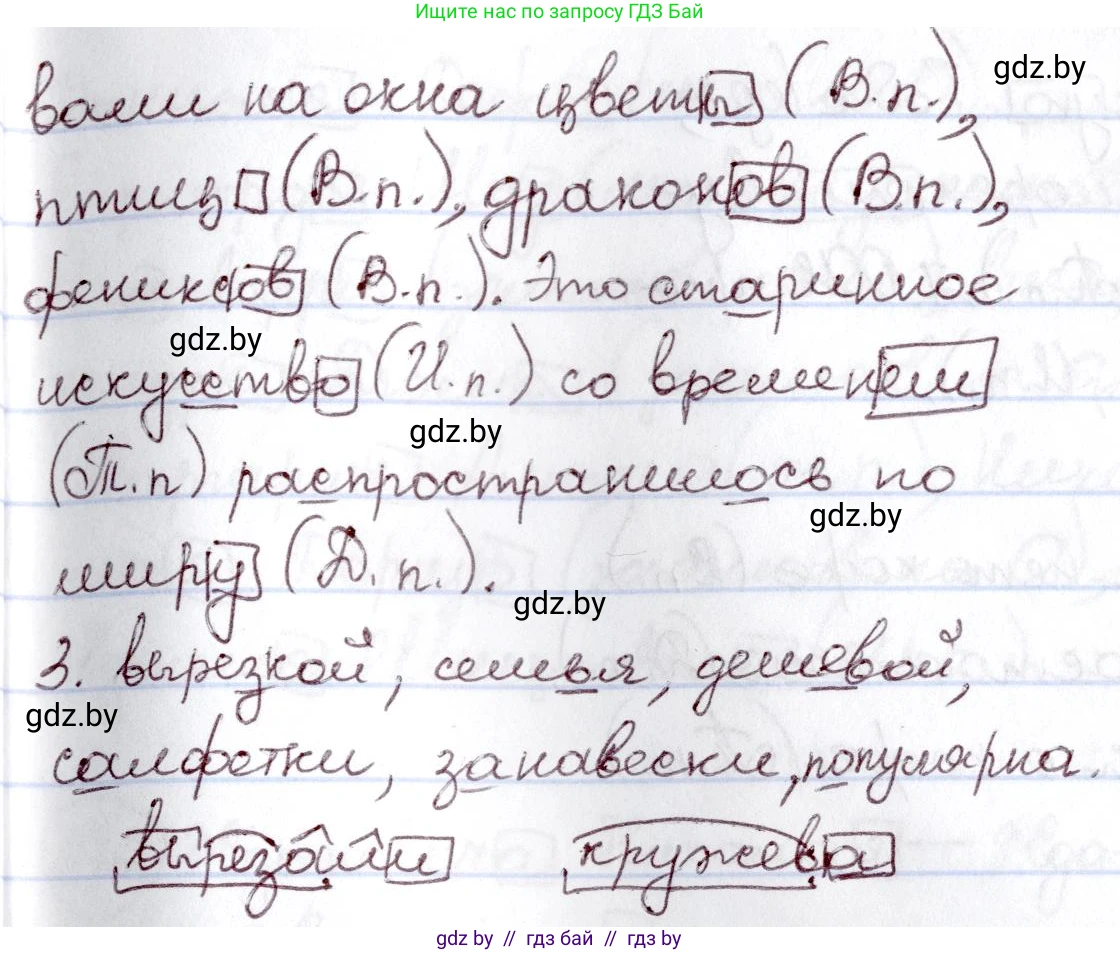 Ищите нас по запросу ГДЗ Бай
вали на окна цветы (В.п.),
gdz.by
птиц (В.п.), драконов (В.п.),
фениксов (В.п.). Это старинное
gdz.by
искусство (И.п.) со временем
gdz.by
(Т.п) распространилось по
gdz.by
миру (Д.п.).
gdz.by
3. вырезкой, семья, дешевой,
gdz.by
салфетки, занавески, популярна.
вырезали кружева
gdz.by // гдз бай // gdz.by